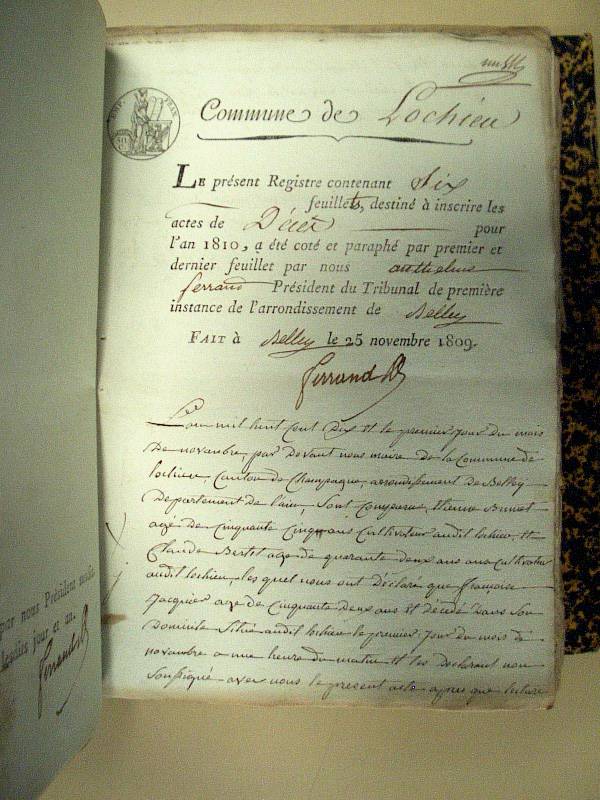 EMP. FRAN.
Commune de Lochieu
LE présent Registre contenant Six
feuillets, destiné à inscrire les
actes de Décet pour
l'an 1810, a été coté et paraphé par premier et
dernier feuillet par nous anthelme
ferrand Président du Tribunal de première
instance de l'arrondissement de Belley
FAIT à Belley le 25 novembre 1809.
Ferrand
L'an mil huit Cent Dix et le premier Jour du mois
De novembre, par Devant nous maire De la Commune de
lochieu, Canton de Champagne, arrondissement de Belley
Departement de l'ain, Sont Comparus, Etienne
agé De Cinquante Cinq ans Cultivateur audit lochieu, et
Claude Bertet age de quarante deux ans aussi Cultivateur
audit lochieu, les quel nous ont Déclaré que françoise
Jacquier age de Cinquante Deux ans Et décédé Dans Son
Domicile Situé audit lochieu le premier Jour du mois de
novembre a une heure du matin Et les Declarant non
Soussigné avec nous le present acte apres que lecture
par nous Président susdit
lesdits jour et an.
Ferrand